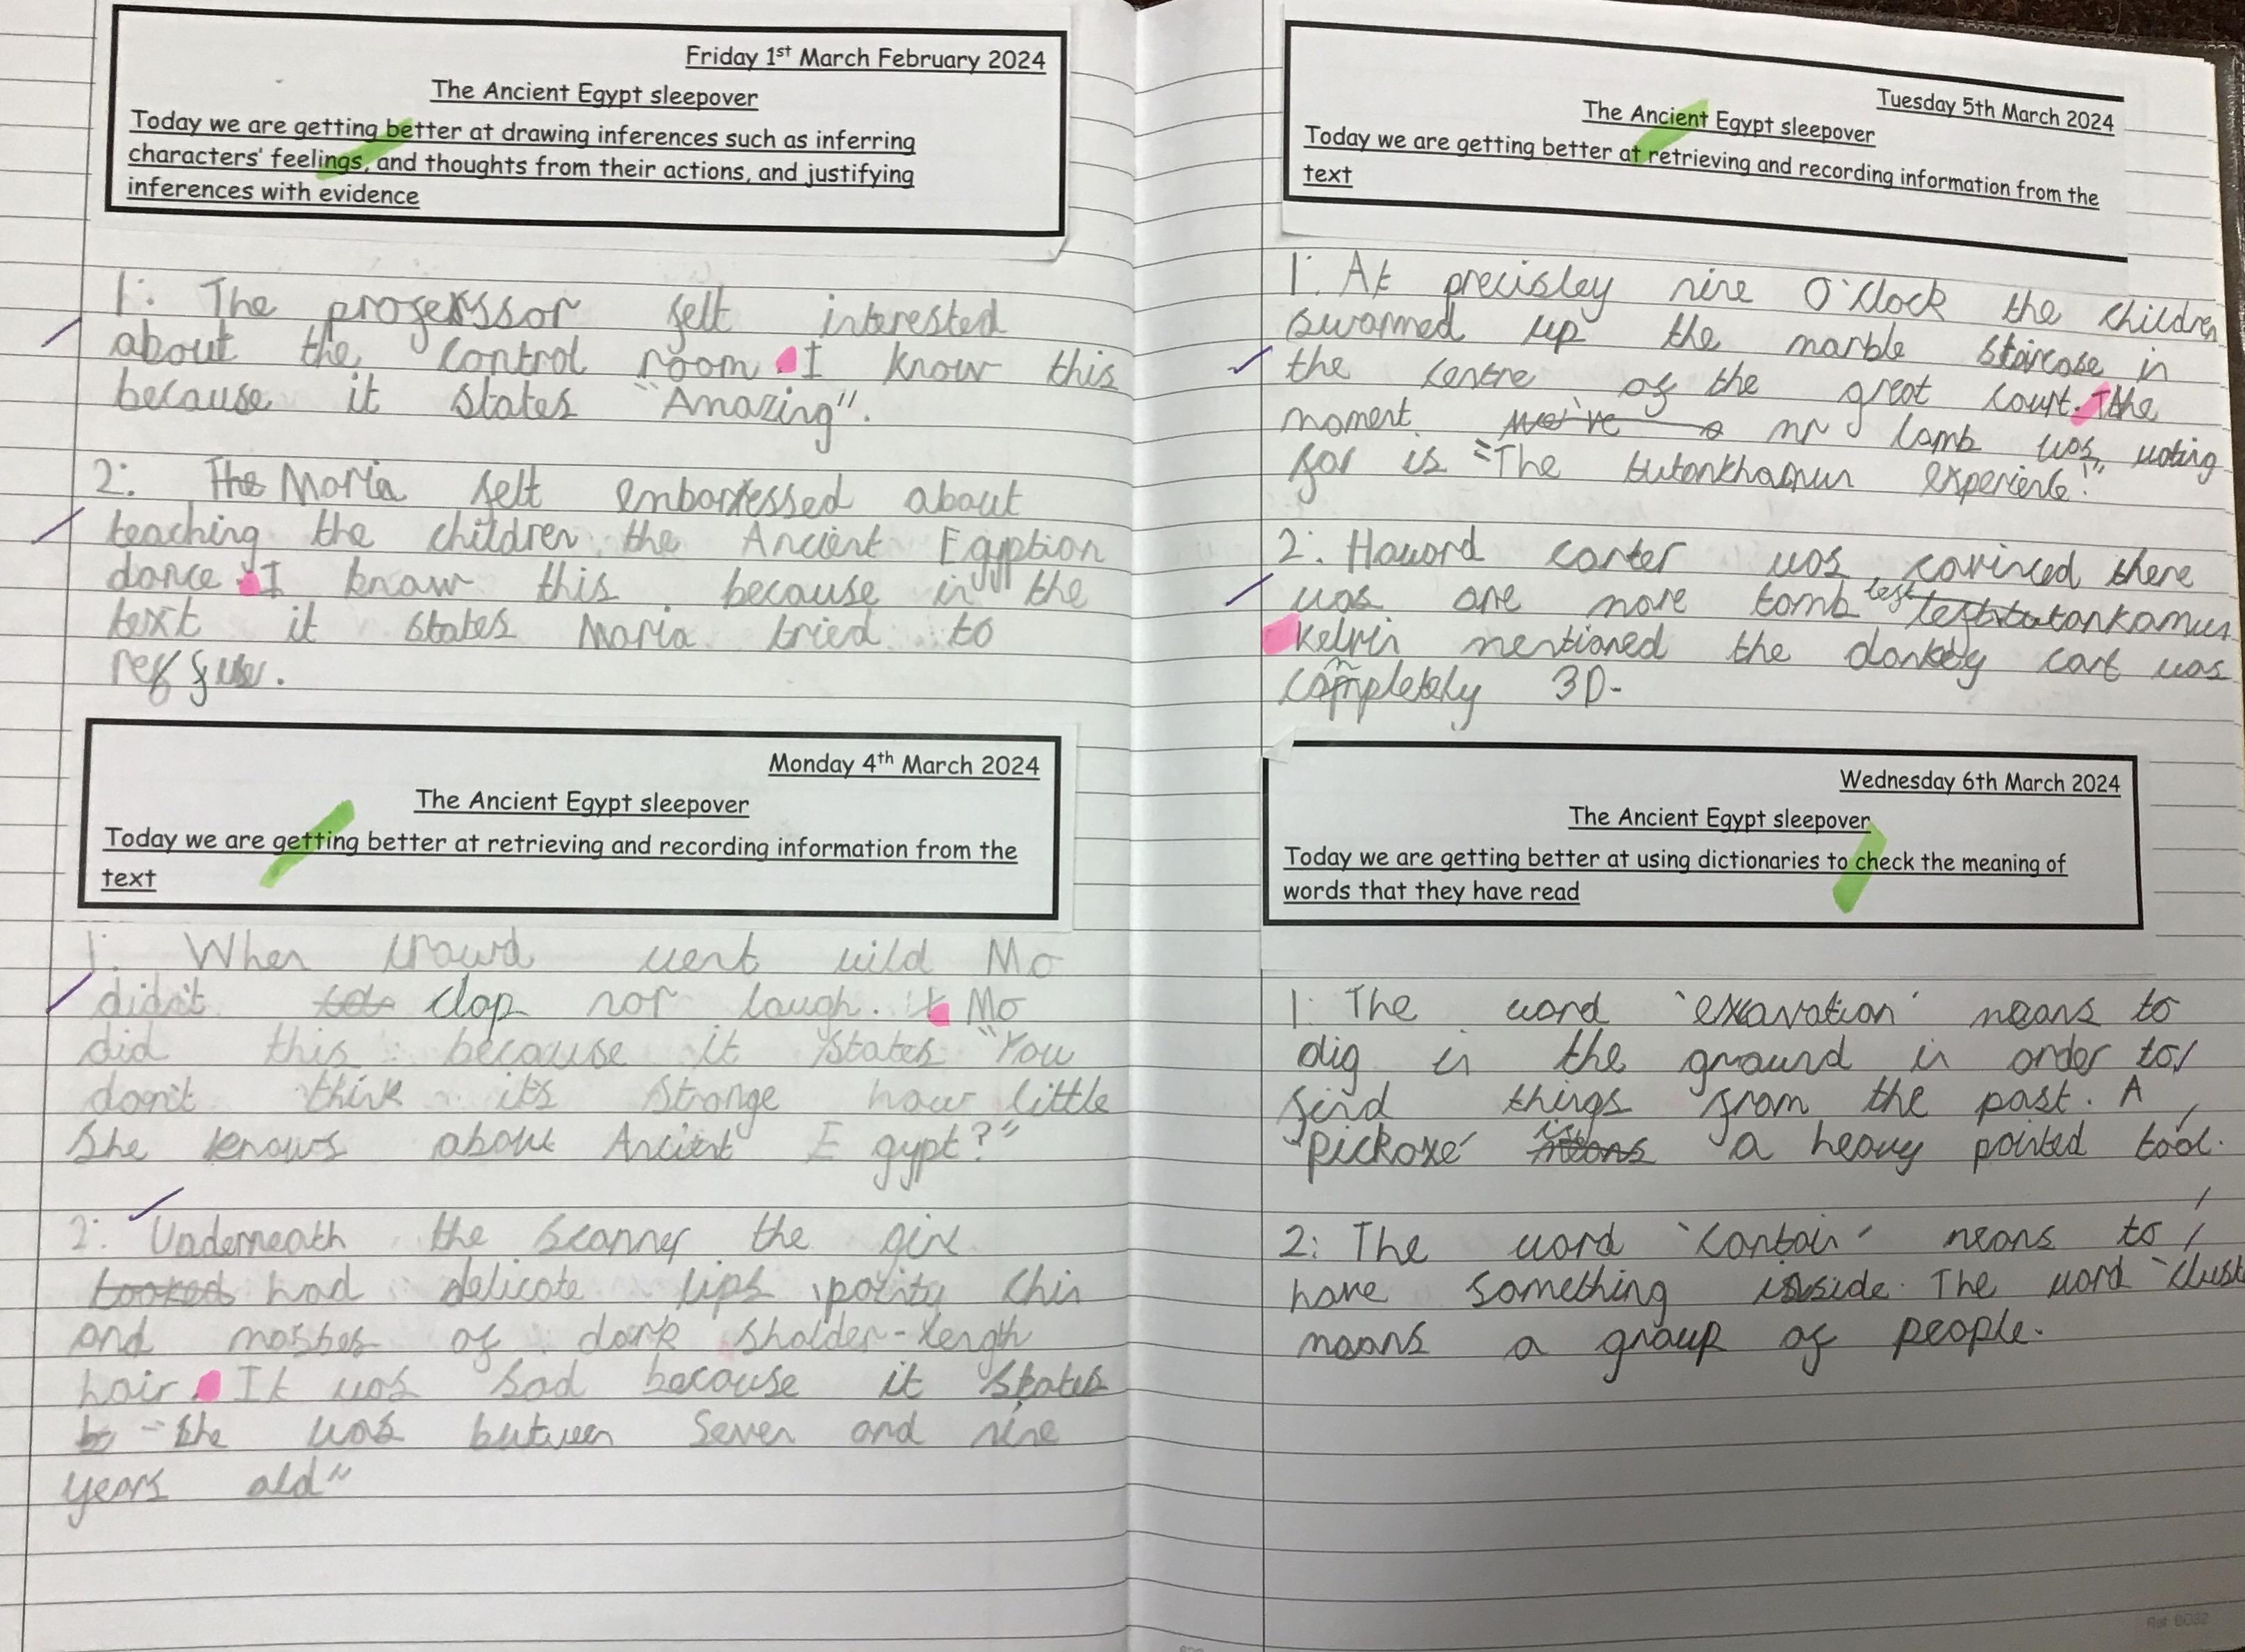 Friday 1st March February 2024
The Ancient Egypt sleepover
Today we are getting better at drawing inferences such as inferring
characters' feelings, and thoughts from their actions, and justifying
inferences with evidence
1. The professor felt interested
about the control room. I know this
because it states "Amazing".
2. The Maria felt embarressed about
teaching the children the Ancient Egyption
dance. I know this because in the
text it states Maria tried to
Monday 4th March 2024
The Ancient Egypt sleepover
Today we are getting better at retrieving and recording information from the
text
1. When crowd went wild Mo
didn't clap nor laugh. Mo
did this because it states "You
don't think it's strange how little
she knows about Ancient Egypt?"
2. Underneath the scanner the
looked had delicate lips chin
and of dark sholder-length
hair. It was sad because it states
"she was between seven and nine
years old"
Tuesday 5th March 2024
The Ancient Egypt sleepover
Today we are getting better at retrieving and recording information from the
text
1. At precisley nine O'Clock the children
swarmed up the marble staircase in
the centre of the great court. The
moment we've a mr lamb was wating
for is "The tutankhamun experience!"
2. Howord carter was convinced there
was one more tomb left
Kelvin mentioned the donkey cart was
completely 3D.
Wednesday 6th March 2024
The Ancient Egypt sleepover
Today we are getting better at using dictionaries to check the meaning of
words that they have read
1. The word 'excavation' means to
dig in the ground in order to
find things from the past. A
'pickaxe' is means a heavy pointed tool.
2. The word 'contain' means to
have something inside. The word 'clust
means a group of people.